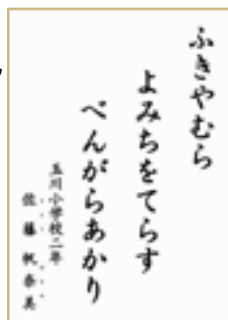 ふきやむら
よみちをてらす
べんがらあかり
玉川小学校二年
佐藤帆奈美